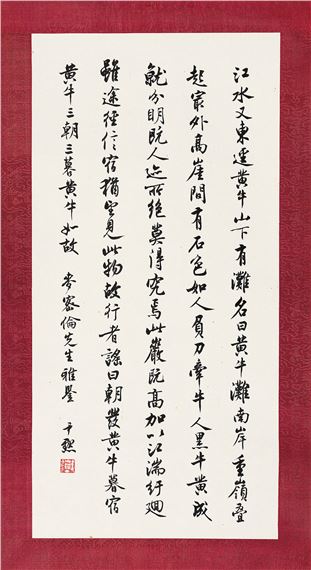 江水又東逕黃牛山下有灘名曰黃牛灘南岸重嶺疊
起最外高崖間有石色如人負刀牽牛人黑牛黃成
就分明既人迹所絕莫得究焉此巖既高加以江湍紆迴
雖途徑信宿猶望見此物故行者謠曰朝發黃牛暮宿
黃牛三朝三暮黃牛如故 倫先生雅鑒